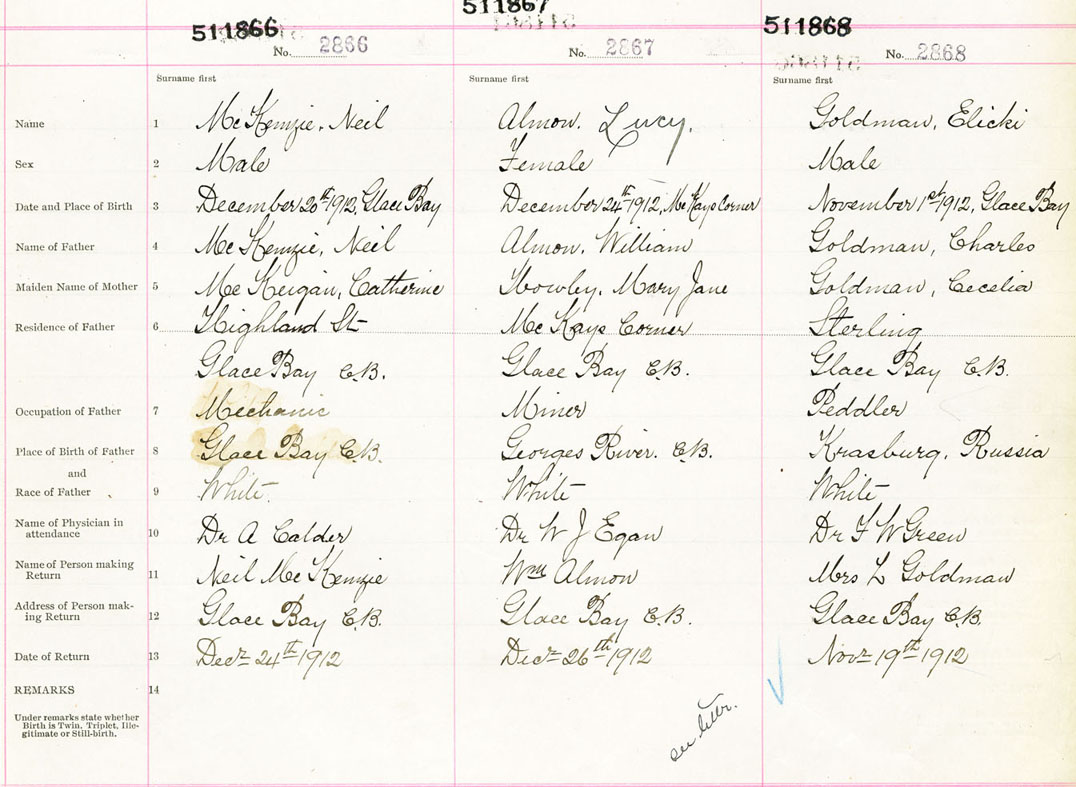 511866 511867 511868
No. 2866 No. 2867 No. 2868
Surname first Surname first Surname first
Name 1 McKenzie, Neil Almon. Lucy. Goldman, Elicki
Sex 2 Male Female Male
Date and Place of Birth 3 December 20th 1912, Glace Bay December 24th 1912, McKays Corner November 1st 1912, Glace Bay
Name of Father 4 McKenzie, Neil Almon, William Goldman, Charles
Maiden Name of Mother 5 McKeigan, Catherine Howley, Mary Jane Goldman, Cecelia
Residence of Father 6 Highland St McKays Corner Sterling
Glace Bay C.B. Glace Bay C.B. Glace Bay C.B.
Occupation of Father 7 Mechanic Miner Peddler
Place of Birth of Father 8 Glace Bay C.B. Georges River. C.B. Krasburg, Russia
and
Race of Father 9 White White White
Name of Physician in
attendance 10 Dr A Calder Dr W J Egan Dr F W Green
Name of Person making
Return 11 Neil McKenzie Wm Almon Mrs L Goldman
Address of Person mak-
ing Return 12 Glace Bay C.B. Glace Bay C.B. Glace Bay C.B.
Date of Return 13 Decr 24th 1912 Decr 26th 1912 Novr 19th 1912
REMARKS 14
Under remarks state whether
Birth is Twin, Triplet, Ille-
gitimate or Still-birth.
see letter.